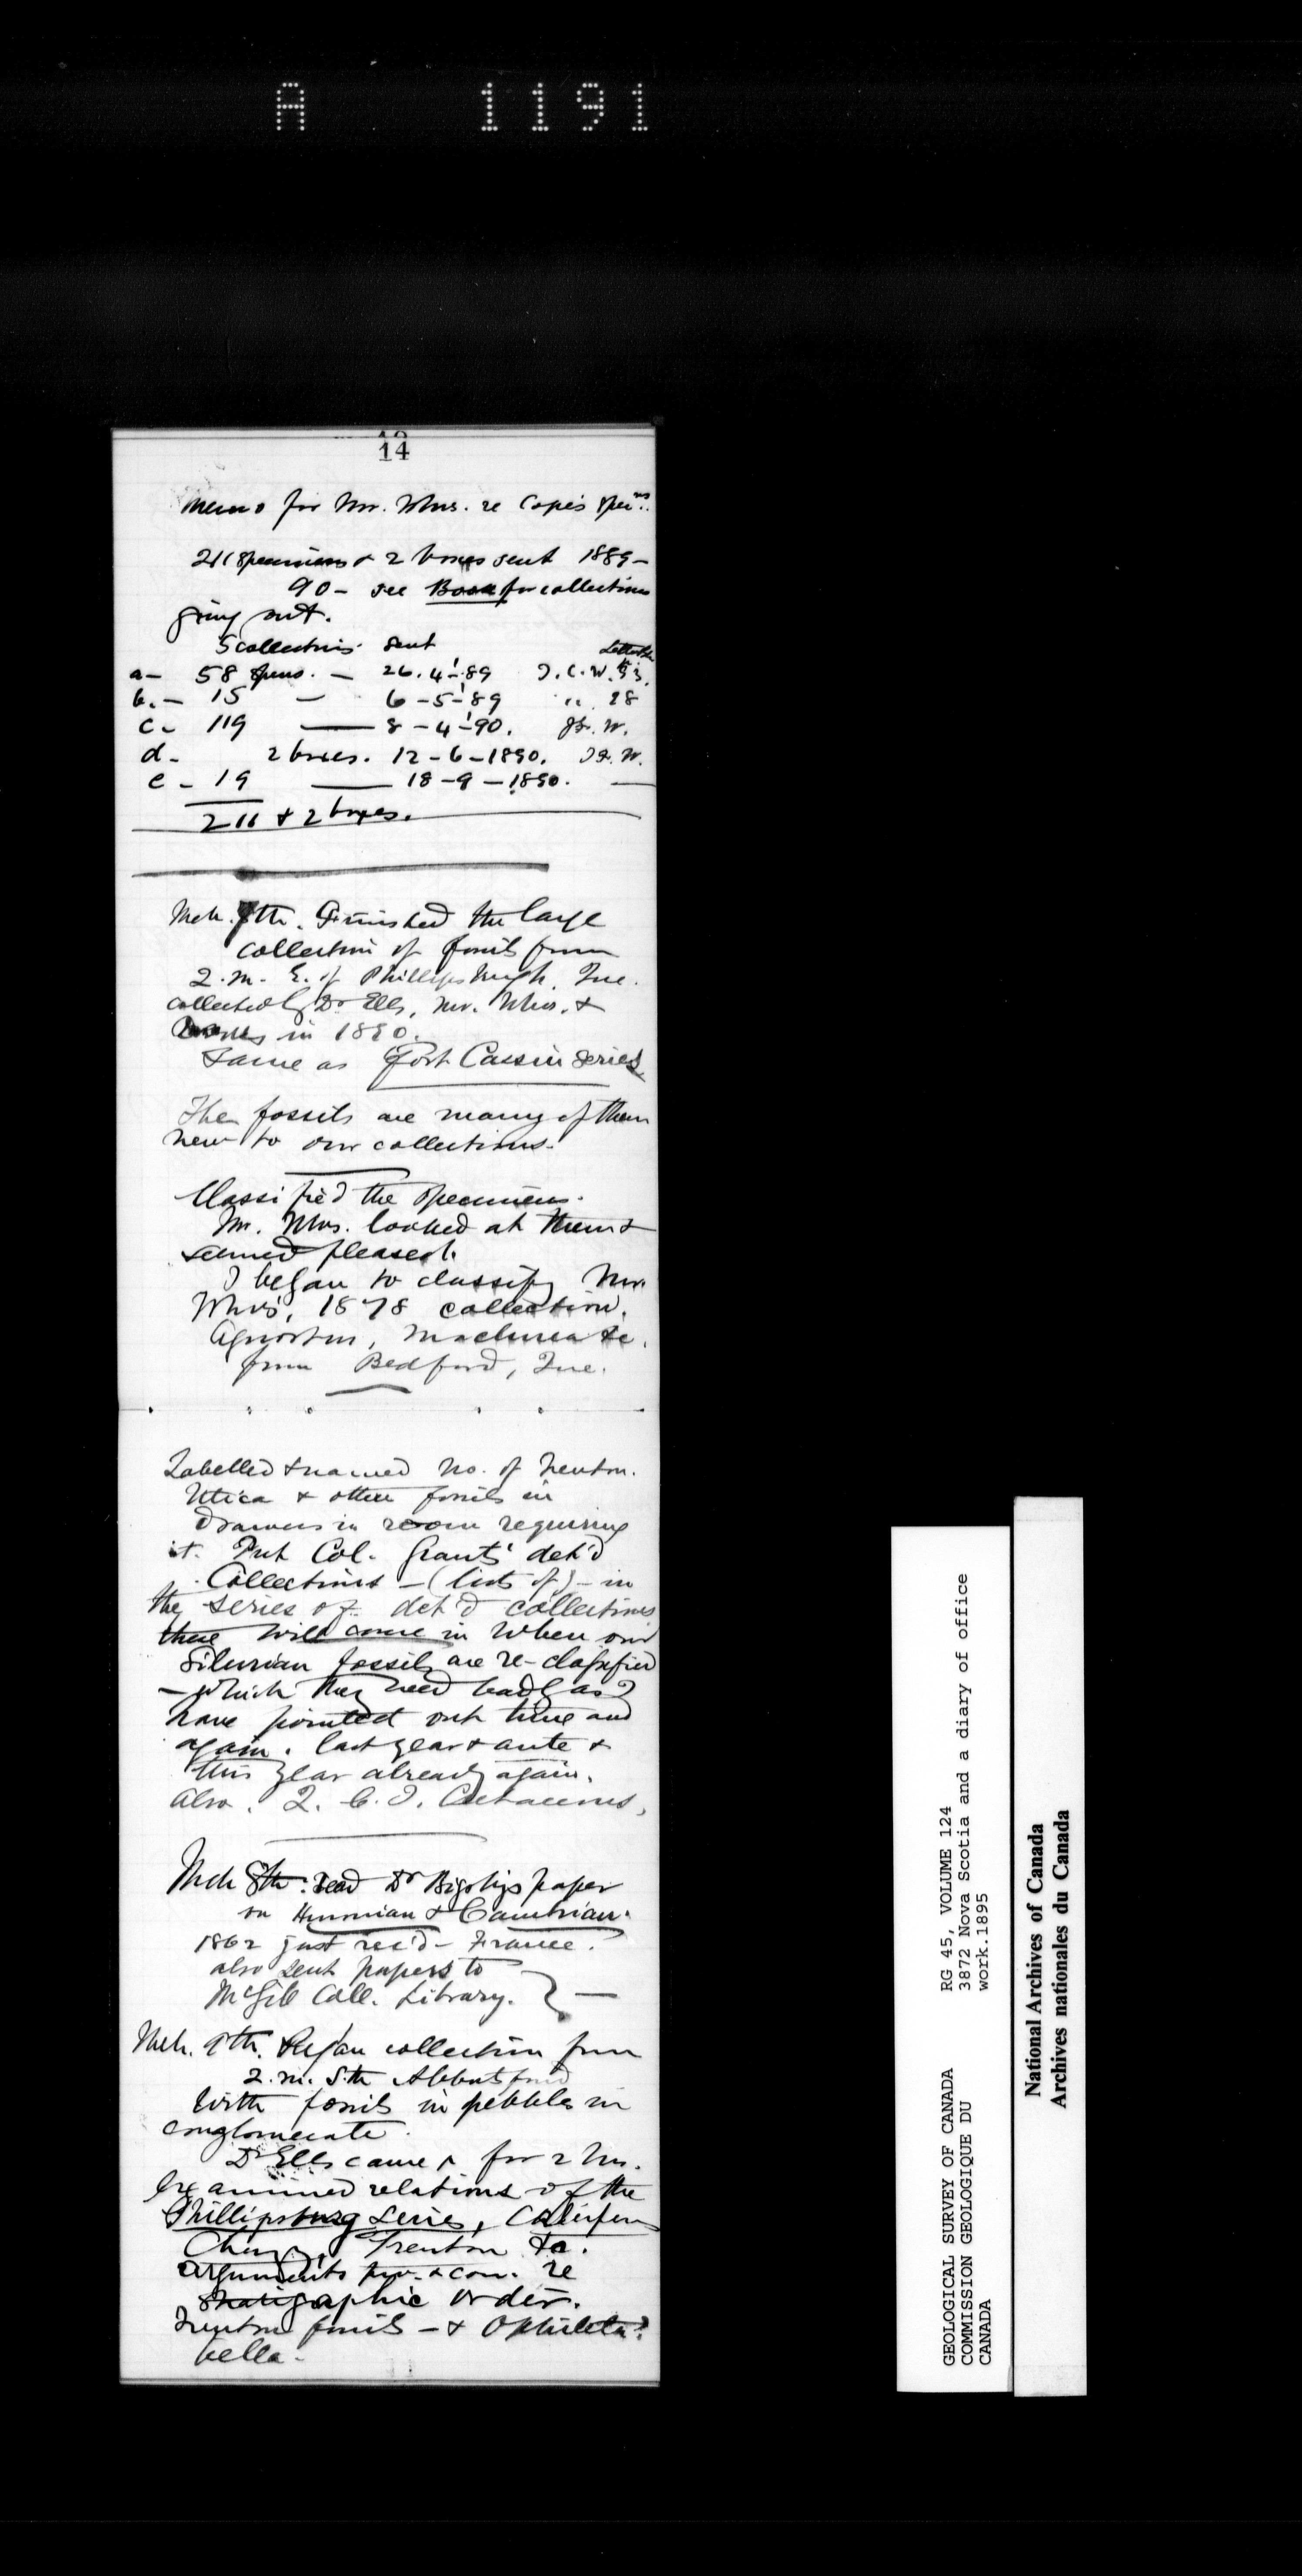 A 1191
14
Memo for Mr. Whvs. re Cope's Spec'ns.
211 Specimens & 2 boxes sent 1889-
90 - see Book for collections
going out.
5 collections sent
a - 58 Spens. — 26.4-'89 J.C.W.
b. - 15 — 6-5-'89 " 28
c - 119 — 8-4-'90. W.
d - 2 boxes. 12-6-1890. W.
e - 19 — 18-9-1890. —
211 & 2 boxes.
Mch. 7th. Finished the large
collection of fossils from
2. m. E. of Phillipsburgh, Que.
collected by Dr Ells, Mr. Whvs. &
in 1890.
Same as Fort Cassin Series
The fossils are many of them
new to our collections.
Classified the specimens.
Mr. Whvs. looked at them &
seemed pleased.
I began to classify Mr.
Whvs', 1878 collection.
Agnostus, Maclurea &c.
from Bedford, Que.
Labelled & named no. of Trenton.
Utica & other fossils in
drawers in room requiring
it. Put Col. Grants' det'd
Collections - (lists of) - in
the series of det'd collections
these will come in when our
Silurian fossils are re-classified
- which they need badly as I
have pointed out time and
again. last year & ante &
this year already again.
Also. Q. C. I. Cretaceous,
Mch 8th. Read Dr Bigsby's paper
on Huronian & Cambrian.
1862 just rec'd - France.
also sent papers to
McGill Coll. Library. } —
Mch. 9th. Began collection from
2. m. Sth Abbotsford
with fossils in pebbles in
conglomerate.
Dr Ells came for 2 hrs.
Examined relations of the
Phillipsburg Series, Calciferous
Chazy, Trenton &c.
arguments pro. & con. re
stratigraphic order.
Trenton fossils - & Ophileta?
bella -
GEOLOGICAL SURVEY OF CANADA
COMMISSION GEOLOGIQUE DU
CANADA
RG 45, VOLUME 124
3872 Nova Scotia and a diary of office
work.1895
National Archives of Canada
Archives nationales du Canada